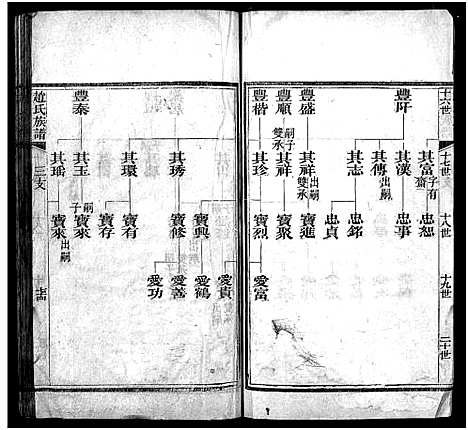 十六世
十七世
十八世
十九世
二十世
豐阡
豐盛
豐順
豐楷
其富 子有齋
其漢
其傳 出嗣
其志
其祥 出嗣雙承
其祥 嗣子雙承
其珍
忠恕
忠事
忠銘
忠貞
寶進
寶聚
寶烈
愛富
豐泰
其琇
其環
其玉
其瑤
寶興
寶修
寶有
寶存
寶來 嗣子
寶來 出嗣
愛貴
愛鶴
愛善
愛功
趙氏族譜
三支